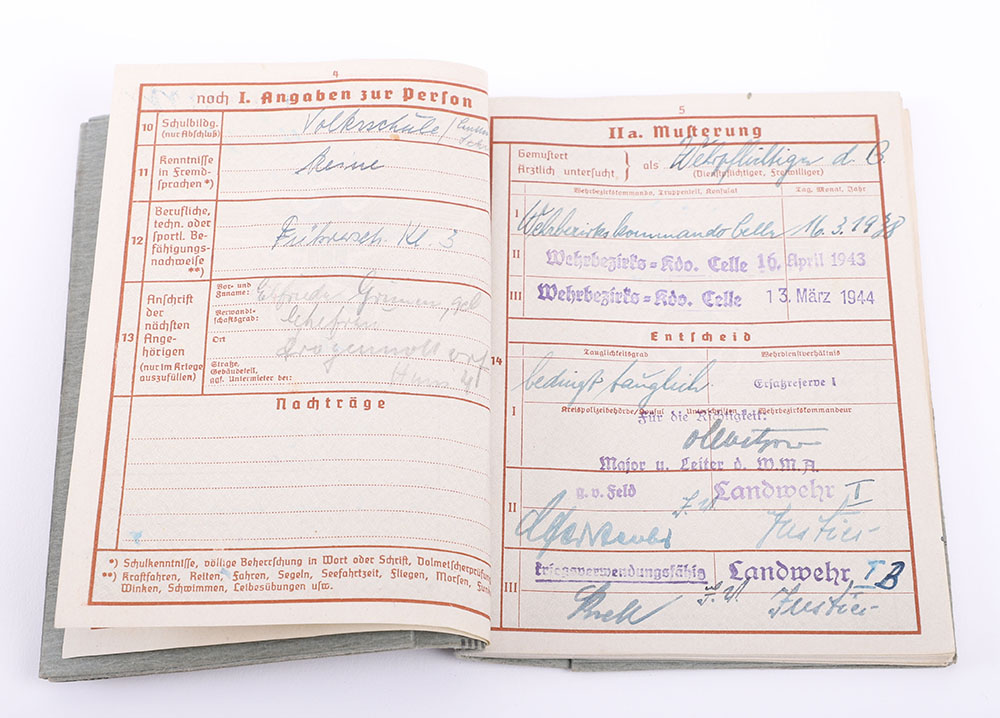 4
noch I. Angaben zur Person
10 Schulbildg. (nur Abschluß)
Volksschule /
11 Kenntnisse in Fremd- sprachen*)
keine
12 Berufliche, techn. oder sportl. Be- fähigungs- nachweise **)
Führersch. Kl. 3
13 Anschrift der nächsten Ange- hörigen (nur im Kriege auszufüllen)
Vor- und Zuname:
Verwandt- schaftsgrad:
Ehefrau
Ort
Straße, Gebäudeteil, ggf. Untermieter bei:
Nachträge
*) Schulkenntnisse, völlige Beherrschung in Wort oder Schrift, Dolmetscherprüfung
**) Kraftfahren, Reiten, Fahren, Segeln, Seefahrtzeit, Fliegen, Morsen,
Winken, Schwimmen, Leibesübungen usw.
5
II a. Musterung
Gemustert
Ärztlich untersucht } als Wehrpflichtiger d. B.
(Dienstpflichtiger, Freiwilliger)
Wehrbezirkskommando, Truppenteil, Konsulat
Tag, Monat, Jahr
I Wehrbezirkskommando Celle 16. 3. 1938
II Wehrbezirks=Kdo. Celle 16. April 1943
III Wehrbezirks=Kdo. Celle 13. März 1944
14
Entscheid
Tauglichkeitsgrad
Wehrdienstverhältnis
I bedingt tauglich
Ersatzreserve I
Kreispolizeibehörde/Konsul Unterschriften Wehrbezirkskommandeur
Für die Richtigkeit:
Major u. Leiter d. W.M.A.
II g. v. Feld
Landwehr I
III kriegsverwendungsfähig
Landwehr I B